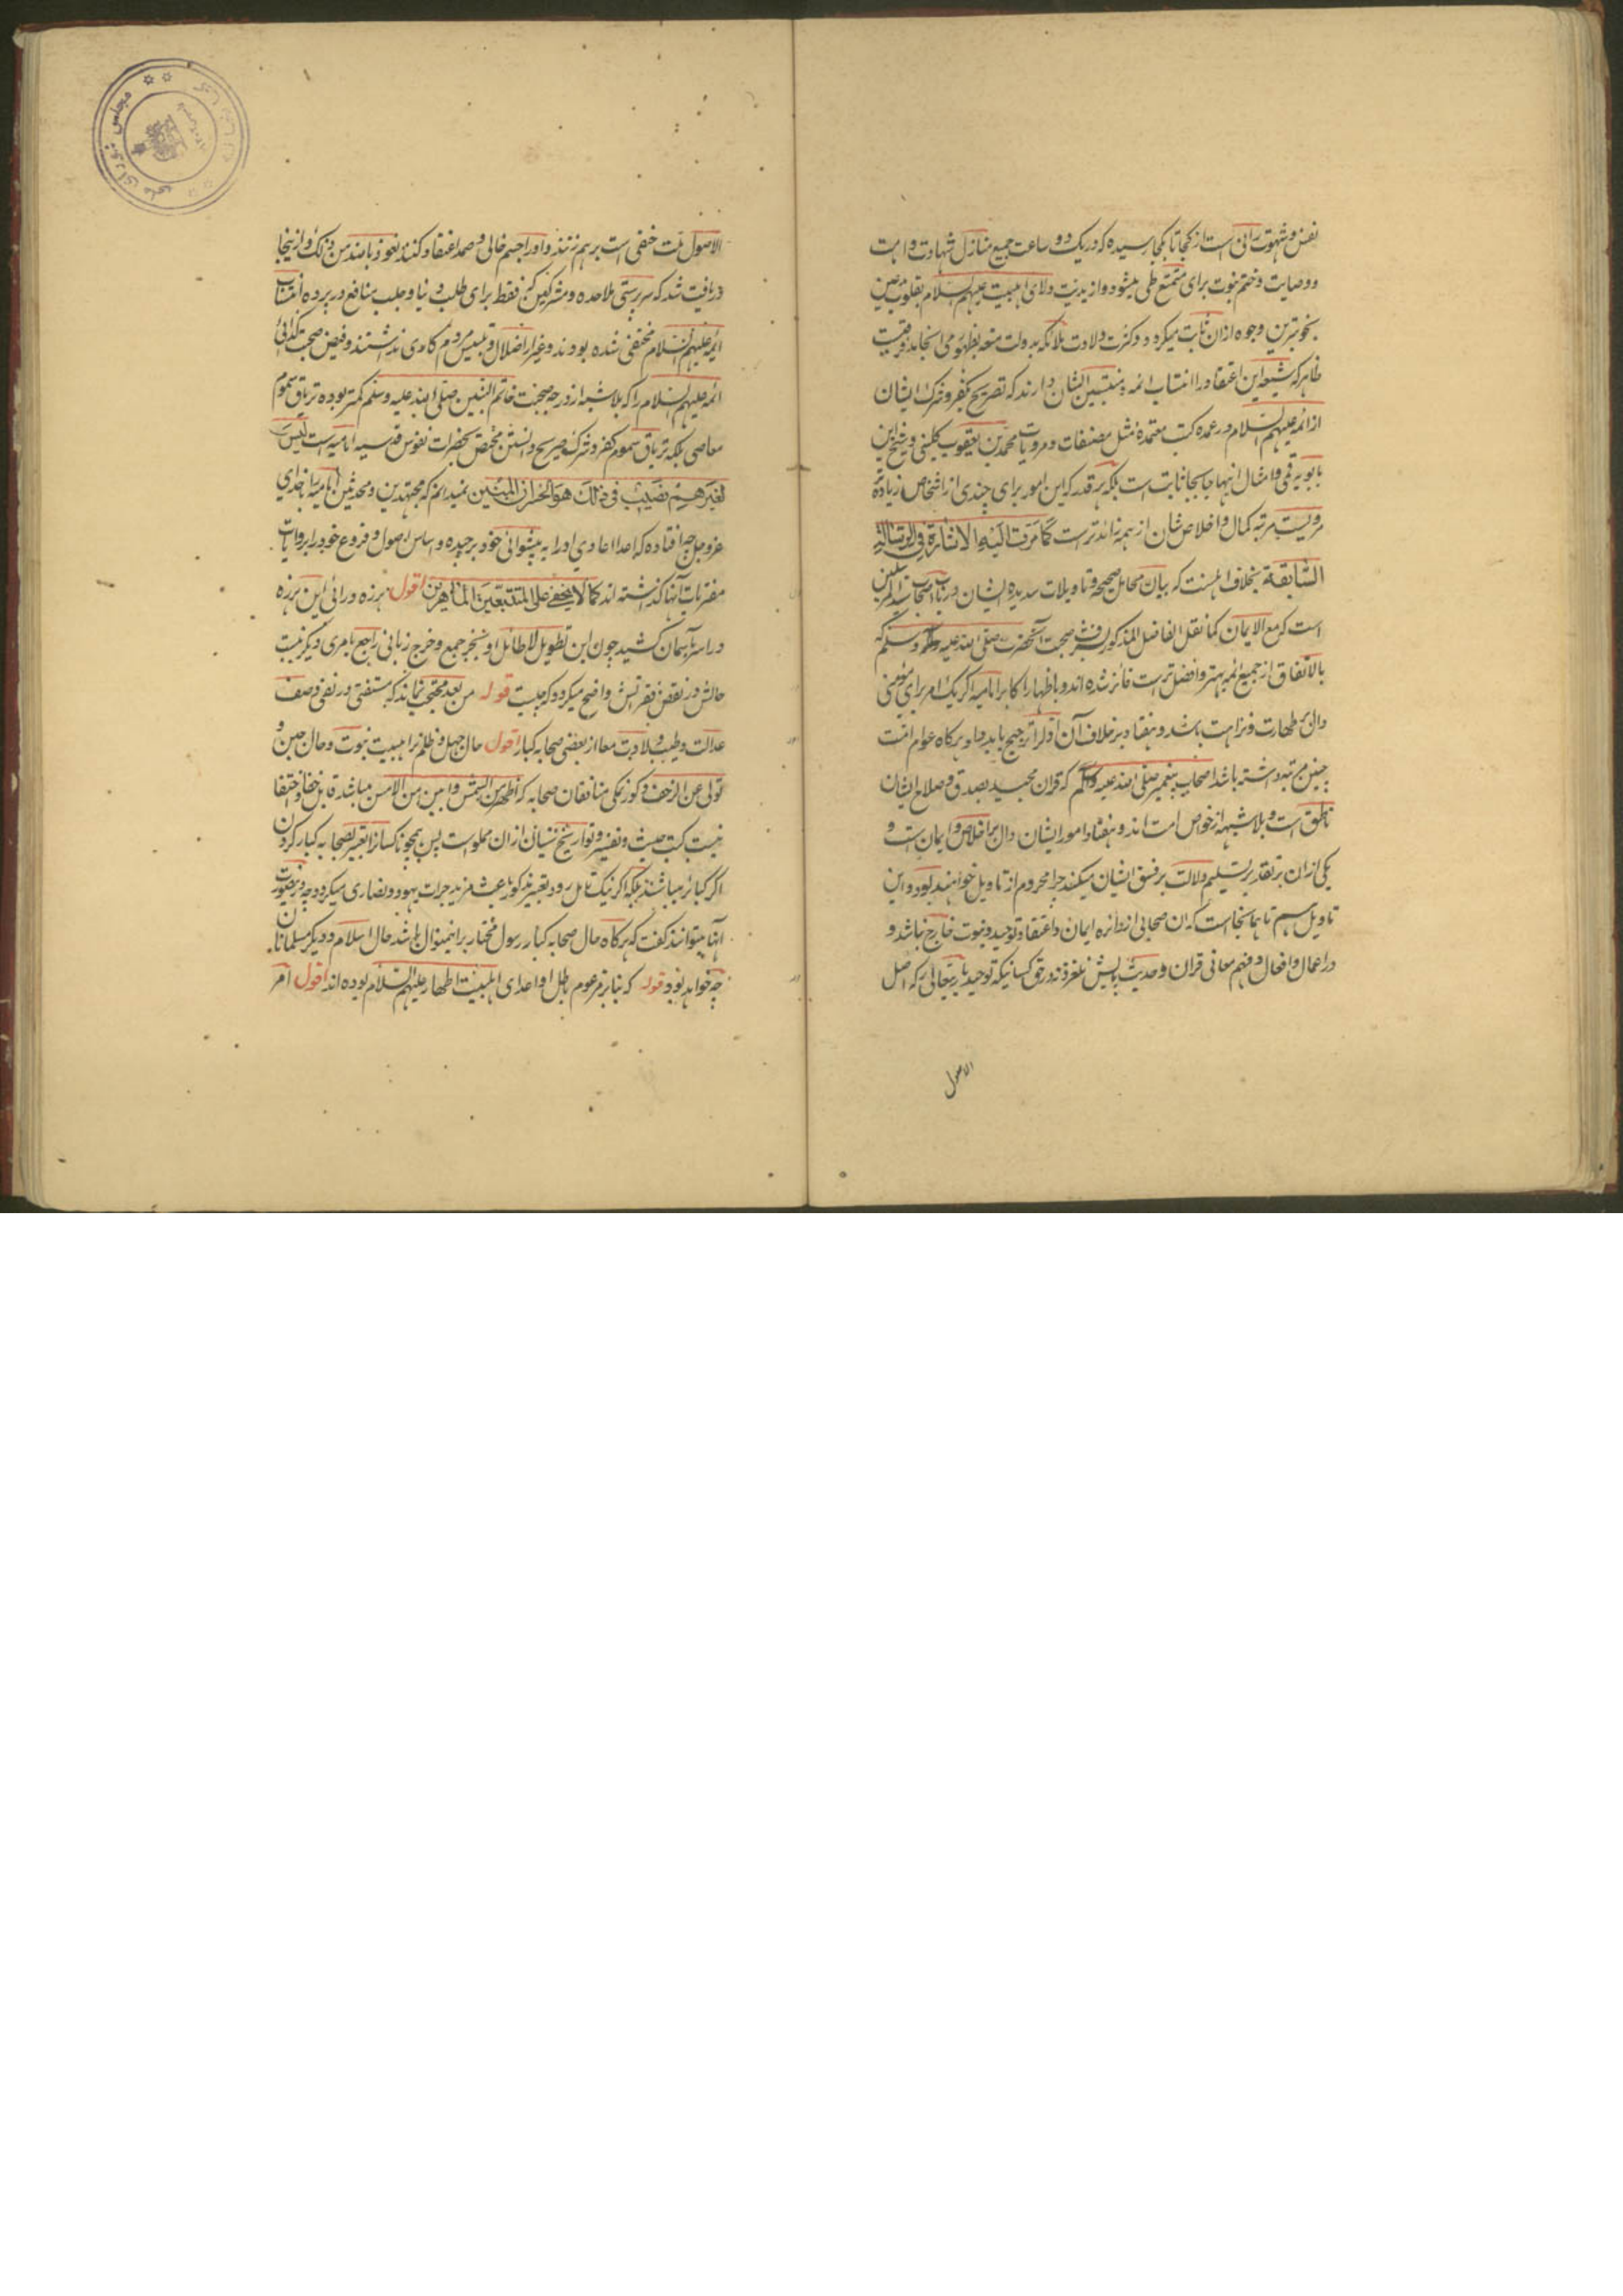 نفس و شهوت رانی است از کجا تا بکجا رسیده که در یک دو ساعت جمیع منازل شهادت و امامت
و وصایت و ختم نبوت برای متمتع طی میشود و از بدیت ولای اهلبیت علیهم السلام بقلوب مومنین
بخوبترین وجوه ازان ثابت میگردد و کثرت ولادت ملائکه بدولت متعه بظهور می انجامد و قریب
ظاهر که شیعه این اعتقاد را انتساب ائمه و منتسبین ایشان دارند که تصریح بکفر و شرک ایشان
از ائمه علیهم السلام در عمده کتب معتمده مثل مصنفات و مرویات محمد بن یعقوب کلینی و شیخ ابن
بابویه قمی و امثال اینها جابجا ثابت است بلکه هر قدر که این امور برای چندی از اشخاص زیاده
مرویست مرتبه کمال و اخلاص شان از همه زائدترست کَمَا مَرَّت الَیْهِ الاشارة فی الرسالة
السَّابِقَة بخلاف اهلسنت که بیان محامل صحیحه و تاویلات سدیده ایشان در باب صحابه سید المرسلین
است که مع الایمان کما نقل الفاضل المذکور بشرف صحبت آنحضرت صلی الله علیه و آله وسلم که
بالاتفاق از جمیع ائمه بهتر و افضل ترست فائز شده اند و باظهار اکابر امامیه اگر یک امر برای مومنی
دال بر طهارت و نزاهت باشد و هفتاد بر خلاف آن اول را ترجیح باید داد و هرگاه عوام امت
چنین مرتبه داشته باشد اصحاب پیغمبر صلی الله علیه و آله وسلم که قران مجید بصدق و صلاح ایشان
ناطق است و بلا شبهه از خواص امت اند و هفتاد امور ایشان دال بر اخلاص و ایمان است و
یکی ازان بر تقدیر تسلیم دلالت بر فسق ایشان میکند چرا محروم از تاویل خواهند بود و این
تاویل هم تا همانجاست که آن صحابی از دائره ایمان و اعتقاد توحید و نبوت خارج نباشد و
در اعمال و افعال و فهم معانی قران و حدیث پایش بلغزد نه در حق کسانیکه توحید باریتعالی را که اصل
الاصول
الاصول ملت حنفی است برهم زنند و او را جسم خالی و صمد اعتقاد کنند نعوذ بالله من ذلک و از اینجا
دریافت شد که سرپرستی ملاحده و مشرکین کنن فقط برای طلب دنیا و جلب منافع در پرده انتساب
ائمه علیهم السلام مختفی شده بودند و غیر از اضلال و تلبیس مردم کاری نداشتند و فیض صحبت کذائی
ائمه علیهم السلام را که بلا شبه از درجه صحبت خاتم النبیین صلی الله علیه وسلم کمتر بوده تریاق سموم
معاصی بلکه تریاق سموم کفر و شرک صریح دانستن مختص بحضرات نفوس قدسیه امامیه است لیس
لغیرهم نصیب فی ذلک هو الخسران المبین نمیدانم که مجتهدین و محدثین امامیه را با خدای
عزوجل چه افتاده که اعدا اعادی او را به پیشوائی خود برچیده و اساس اصول و فروع خود را بر روایات
مفتریات آنها گذاشته اند کما لا یخفی علی المتتبعین الماهرین اقول هرزه درائی این هرزه
درا سر بآسمان کشید چون این تطویل لاطائل او بنجر جمیع و خرج زبانی راجع بامری دیگر نیست
حالش در نقض فقراتش واضح میگردد که چیست قوله من بعد محتجب نماند که مستفتی در نفی وصف
عدالت و طیب ولادت معا از بعضی صحابه کبار اقول حال جهل و ظلم بر اهلبیت نبوت و حال جبن و
تولی عن الزحف و کورنمکی منافقان صحابه که اظهر من الشمس و ابین من الامس میباشد قابل خفا و اختفا
نیست کتب حدیث و تفسیر و تواریخ سنیان ازان مملوست پس همچو ناکسان را تعبیر بصحابه کبار کردن
اکبر کبائر میباشد بلکه اگر نیک تامل رود تعبیر مذکور باعث مزید جرات یهود و نصاری میگردد چه درینصورت
آنها میتوانند گفت که هرگاه حال صحابه کبار رسول مختار برینمنوال باشد حال اسلام و دیگر مسلمانان
چه خواهد بود قوله که بنا بر مزعوم باطل او اعدای اهلبیت اطهار علیهم السلام بوده اند اقول امر
مجلس شورای ملی